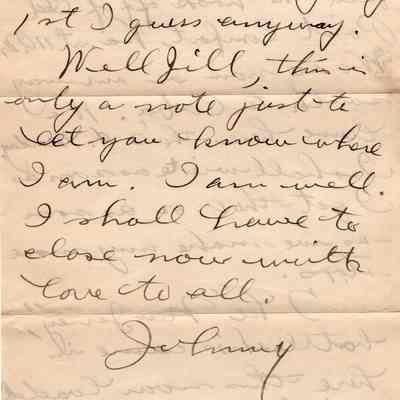 1st I guess anyway.
Well Jill, this is
only a note just to
let you know where
I am. I am well.
I shall have to
close now with
love to all.
Johnny